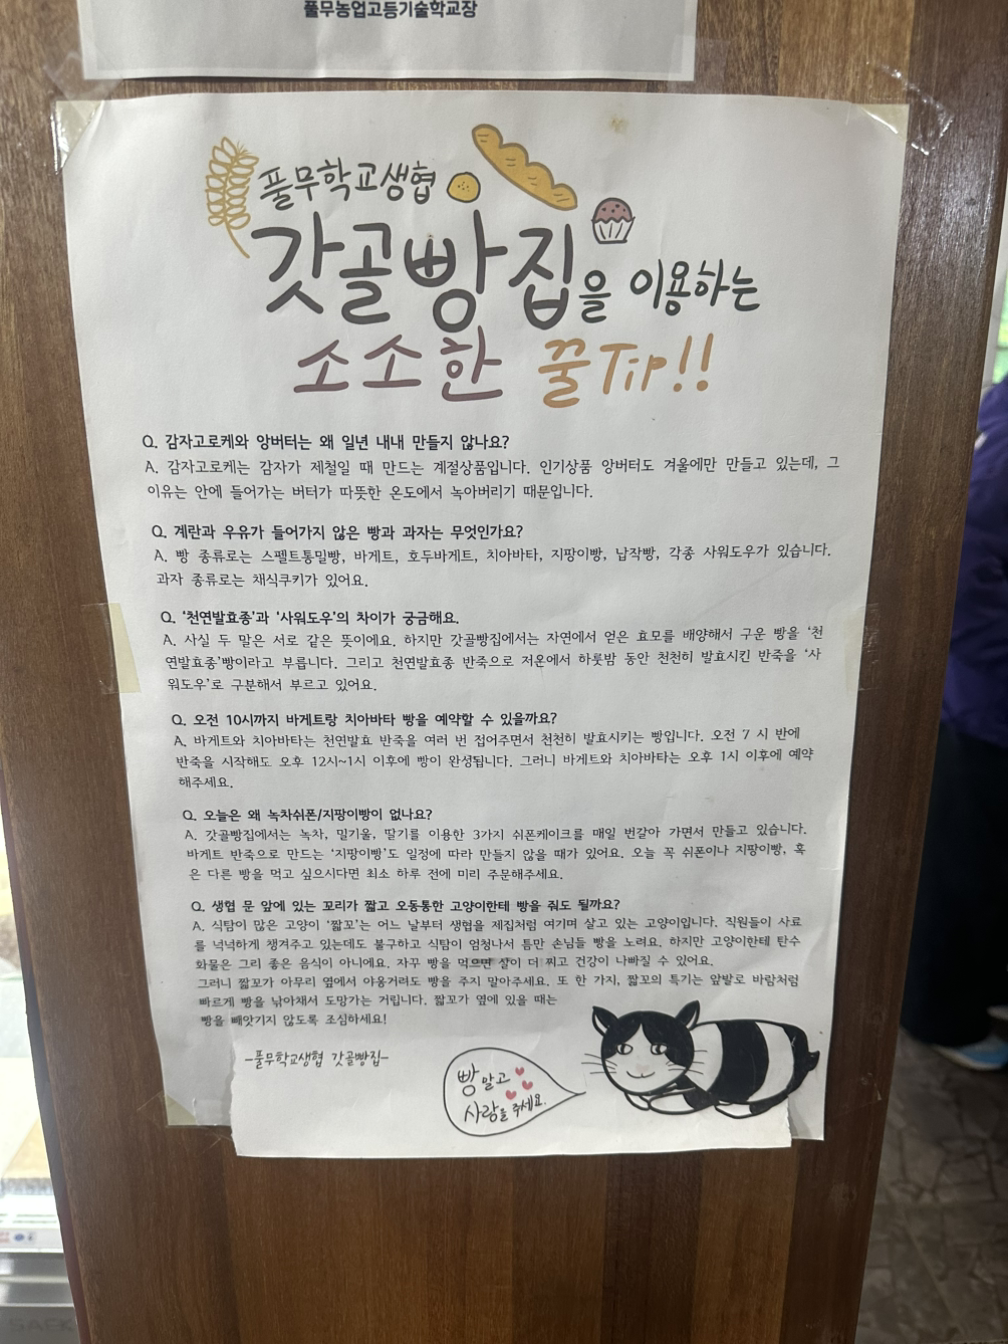 풀무농업고등기술학교장
풀무학교생협
갓골빵집을 이용하는
소소한 꿀Tip!!
Q. 감자고로케와 앙버터는 왜 일년 내내 만들지 않나요?
A. 감자고로케는 감자가 제철일 때 만드는 계절상품입니다. 인기상품 앙버터도 겨울에만 만들고 있는데, 그
이유는 안에 들어가는 버터가 따뜻한 온도에서 녹아버리기 때문입니다.
Q. 계란과 우유가 들어가지 않은 빵과 과자는 무엇인가요?
A. 빵 종류로는 스펠트통밀빵, 바게트, 호두바게트, 치아바타, 지팡이빵, 납작빵, 각종 사워도우가 있습니다.
과자 종류로는 채식쿠키가 있어요.
Q. '천연발효종'과 '사워도우'의 차이가 궁금해요.
A. 사실 두 말은 서로 같은 뜻이에요. 하지만 갓골빵집에서는 자연에서 얻은 효모를 배양해서 구운 빵을 '천
연발효종'빵이라고 부릅니다. 그리고 천연발효종 반죽으로 저온에서 하룻밤 동안 천천히 발효시킨 반죽을 '사
워도우'로 구분해서 부르고 있어요.
Q. 오전 10시까지 바게트랑 치아바타 빵을 예약할 수 있을까요?
A. 바게트와 치아바타는 천연발효 반죽을 여러 번 접어주면서 천천히 발효시키는 빵입니다. 오전 7 시 반에
반죽을 시작해도 오후 12시~1시 이후에 빵이 완성됩니다. 그러니 바게트와 치아바타는 오후 1시 이후에 예약
해주세요.
Q. 오늘은 왜 녹차쉬폰/지팡이빵이 없나요?
A. 갓골빵집에서는 녹차, 밀기울, 딸기를 이용한 3가지 쉬폰케이크를 매일 번갈아 가면서 만들고 있습니다.
바게트 반죽으로 만드는 '지팡이빵'도 일정에 따라 만들지 않을 때가 있어요. 오늘 꼭 쉬폰이나 지팡이빵, 혹
은 다른 빵을 먹고 싶으시다면 최소 하루 전에 미리 주문해주세요.
Q. 생협 문 앞에 있는 꼬리가 짧고 오동통한 고양이한테 빵을 줘도 될까요?
A. 식탐이 많은 고양이 '짧꼬'는 어느 날부터 생협을 제집처럼 여기며 살고 있는 고양이입니다. 직원들이 사료
를 넉넉하게 챙겨주고 있는데도 불구하고 식탐이 엄청나서 틈만 손님들 빵을 노려요. 하지만 고양이한테 탄수
화물은 그리 좋은 음식이 아니에요. 자꾸 빵을 먹으면 살이 더 찌고 건강이 나빠질 수 있어요.
그러니 짧꼬가 아무리 옆에서 야옹거려도 빵을 주지 말아주세요. 또 한 가지, 짧꼬의 특기는 앞발로 바람처럼
빠르게 빵을 낚아채서 도망가는 거립니다. 짧꼬가 옆에 있을 때는
빵을 빼앗기지 않도록 조심하세요!
-풀무학교생협 갓골빵집-
빵 말고
사랑을 주세요.